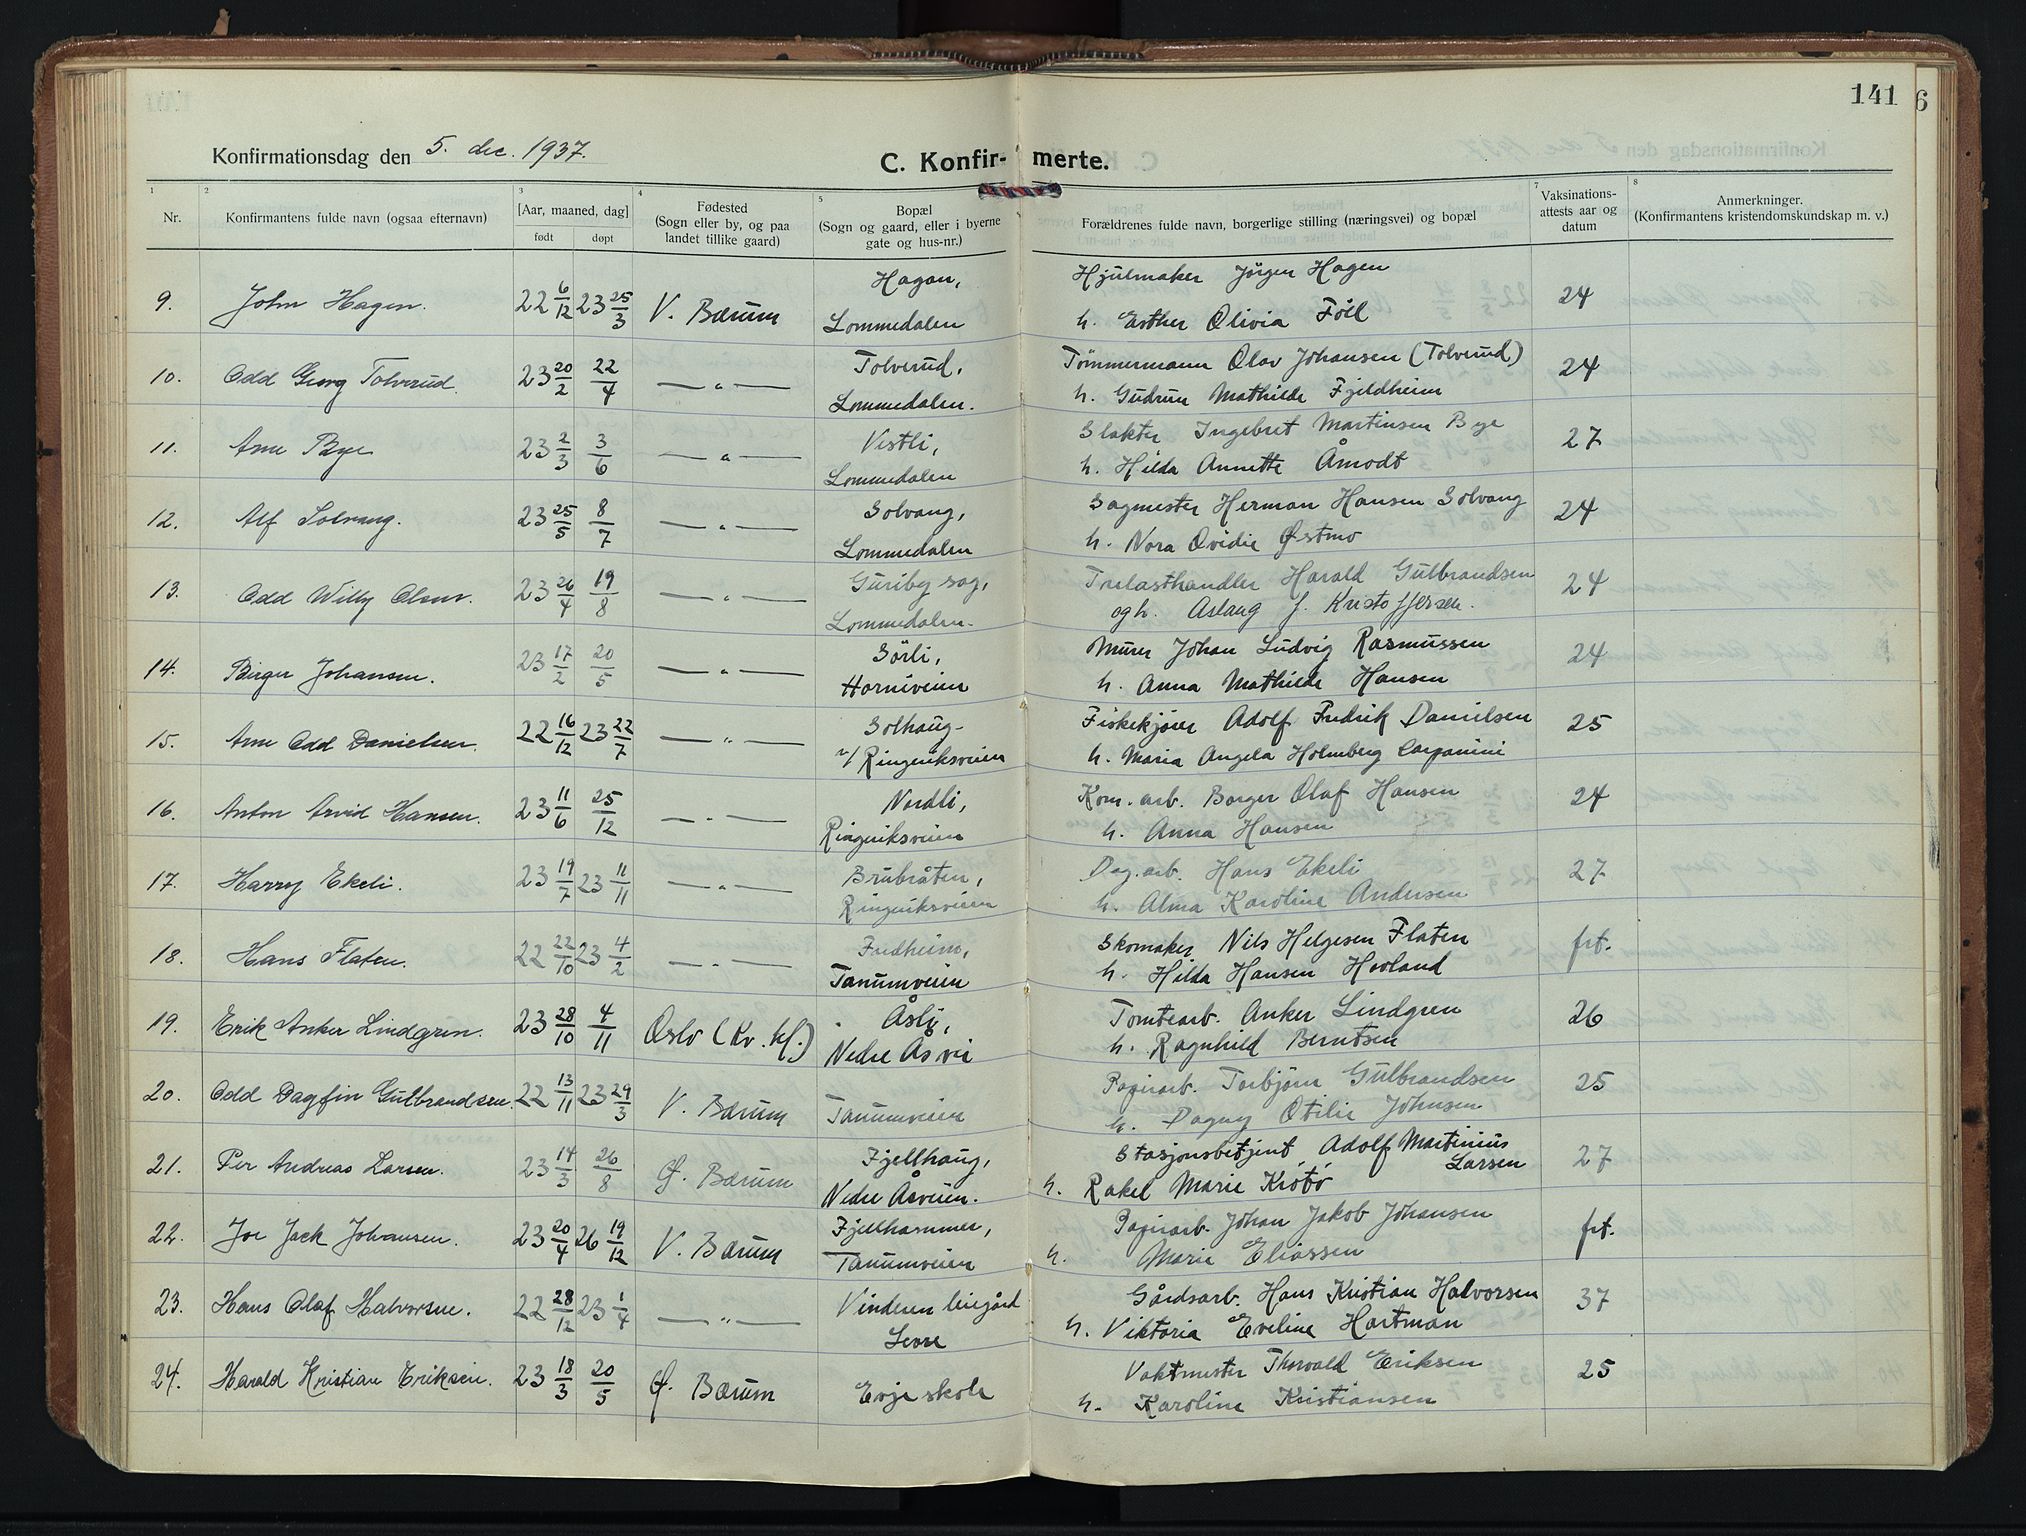 141
6
Konfirmationsdag den 5. dec. 1937.
C. Konfir- merte.
1 2 3 4 5 7 8
Nr.
Konfirmantens fulde navn (ogsaa efternavn)
[Aar, maaned, dag]
født døpt
Fødested
(Sogn eller by, og paa
landet tillike gaard)
Bopæl
(Sogn og gaard, eller i byerne
gate og hus-nr.)
Forældrenes fulde navn, borgerlige stilling (næringsvei) og bopæl
Vaksinations-
attests aar og
datum
Anmerkninger.
(Konfirmantens kristendomskundskap m. v.)
9. John Hagen. 22 6/12 23 25/3 V. Bærum Hagan, Hjulmaker Jörgen Hagen 24
Lommedalen h. Esther Olivia Föll
10. Odd Georg Tolverud. 23 20/2 22/4 — " — Tolverud, Tømmermann Olav Johansen (Tolverud) 24
Lommedalen. h. Gudrun Mathilde Fjeldheim
11. Arne Bye 23 2/3 3/6 — " — Vestli, Slakter Ingebret Martinsen Bye 27
Lommedalen h. Hilda Annette Åmodt
12. Alf Solvang. 23 25/5 8/7 — " — Solvang, Sagmester Herman Hansen Solvang 24
Lommedalen h. Nora Ovidie Østmo
13. Odd Willy Olsen. 23 26/4 19/8 — " — Guriby sag, Trelasthandler Harald Gulbrandsen 24
Lommedalen. og h. Aslaug f. Kristoffersen.
14. Birger Johansen. 23 17/2 20/5 — " — Sörli, Murer Johan Ludvig Rasmussen 24
Horniveien h. Anna Mathilde Hansen
15. Arne Odd Danielsen. 22 16/12 23 22/7 — " — Solhaug- Fiskekjører Adolf Fredrik Danielsen 25
v/ Ringeriksveien h. Maria Angela Holmberg Carpanini
16. Anton Arvid Hansen. 23 11/6 25/12 — " — Nordli, Kom. arb. Borger Olaf Hansen 24
Ringeriksveien h. Anna Hansen
17. Harry Ekeli. 23 19/7 23 11/11 — " — Brubråten, Dag. arb. Hans Ekeli 27
Ringeriksveien h. Alma Karoline Andersen
18. Hans Flaten. 22 22/10 23 4/2 — " — Fredheim, Skomaker Nils Helgesen Flaten frt.
Tanumveien h. Hilda Hansen Hovland
19. Erik Anker Lindgren. 23 28/10 4/11 Oslo (Kv. kl.) Åsly, Tomtearb. Anker Lindgren 26
Nedre Åsvei h. Ragnhild Berntsen
20. Odd Dagfin Gulbrandsen. 22 13/11 23 29/3 V. Bærum Tanumveien Papirarb. Torbjörn Gulbrandsen 25
h. Dagny Otilie Johnsen
21. Per Andreas Larsen. 23 14/3 26/8 Ø. Bærum Fjellhaug, Stasjonsbetjent Adolf Martinius Larsen 27
Nedre Åsveien. h. Rakel Marie Krötö
22. Joe Jack Johansen. 23 20/4 26 19/12 V. Bærum Fjellhammer, Papirarb. Johan Jakob Johansen frt.
Tanumveien h. Marie Eliassen
23. Hans Olaf Halvorsen. 22 28/12 23 1/4 — " — Vinderen leiegård Gårdsarb. Hans Kristian Halvorsen 37
Levre h. Viktoria Eveline Hartman
24. Harald Kristian Eriksen. 23 18/3 20/5 Ø. Bærum Evje skole Vaktmester Thorvald Eriksen 25
h. Karoline Kristiansen